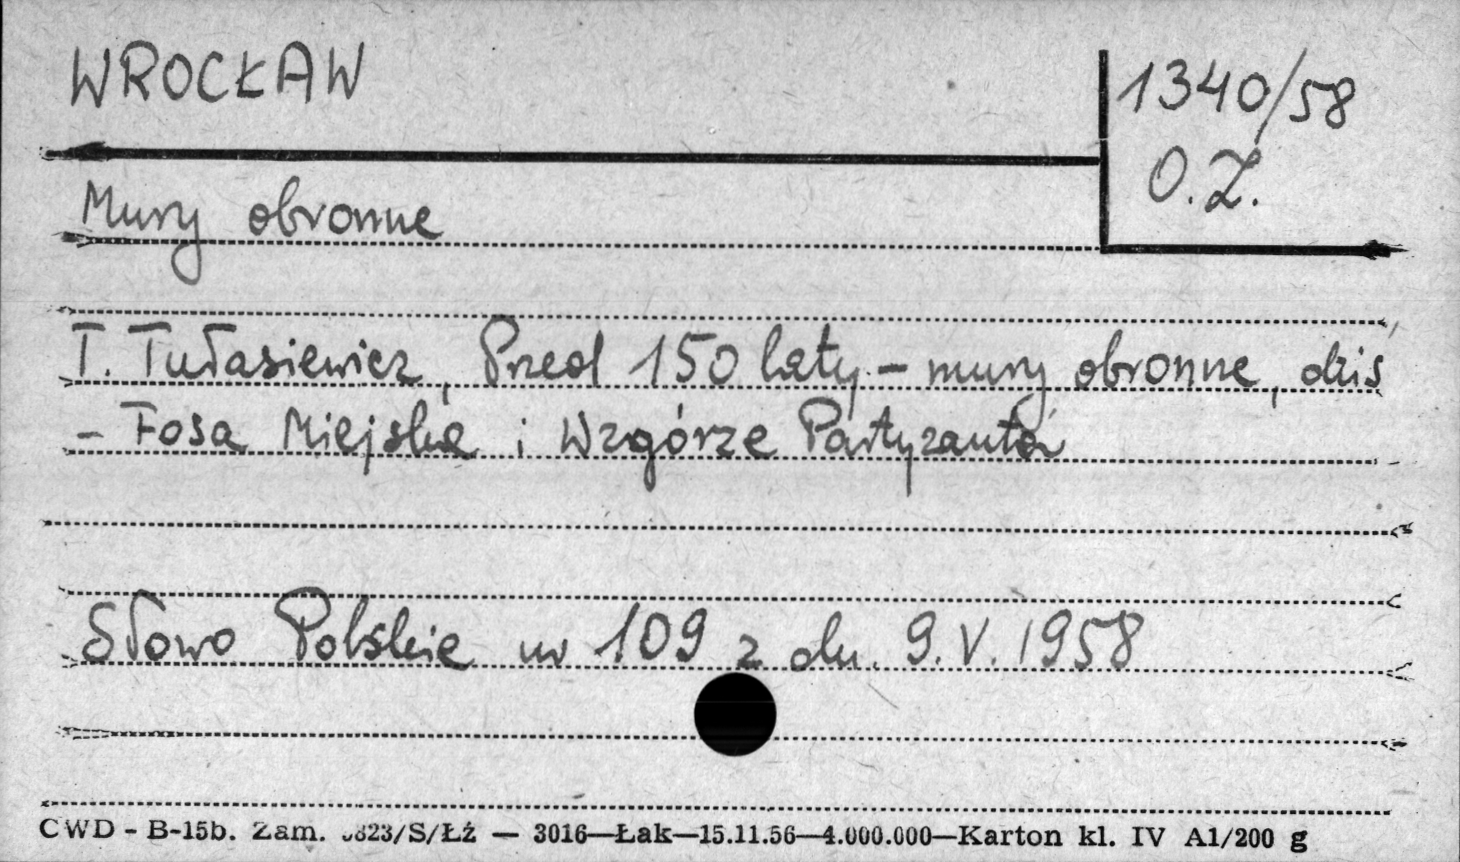 WROCŁAW
1340/58
O.Z.
Mury obronne
T. Tułasiewicz, Przed 150 laty – mury obronne, dziś
– Fosa Miejska i Wzgórze Partyzantów
Słowo Polskie nr 109 z dn. 9.V.1958
CWD - B-15b. Zam. 5823/S/Łź — 3016—Łak—15.11.56—4.000.000—Karton kl. IV A1/200 g